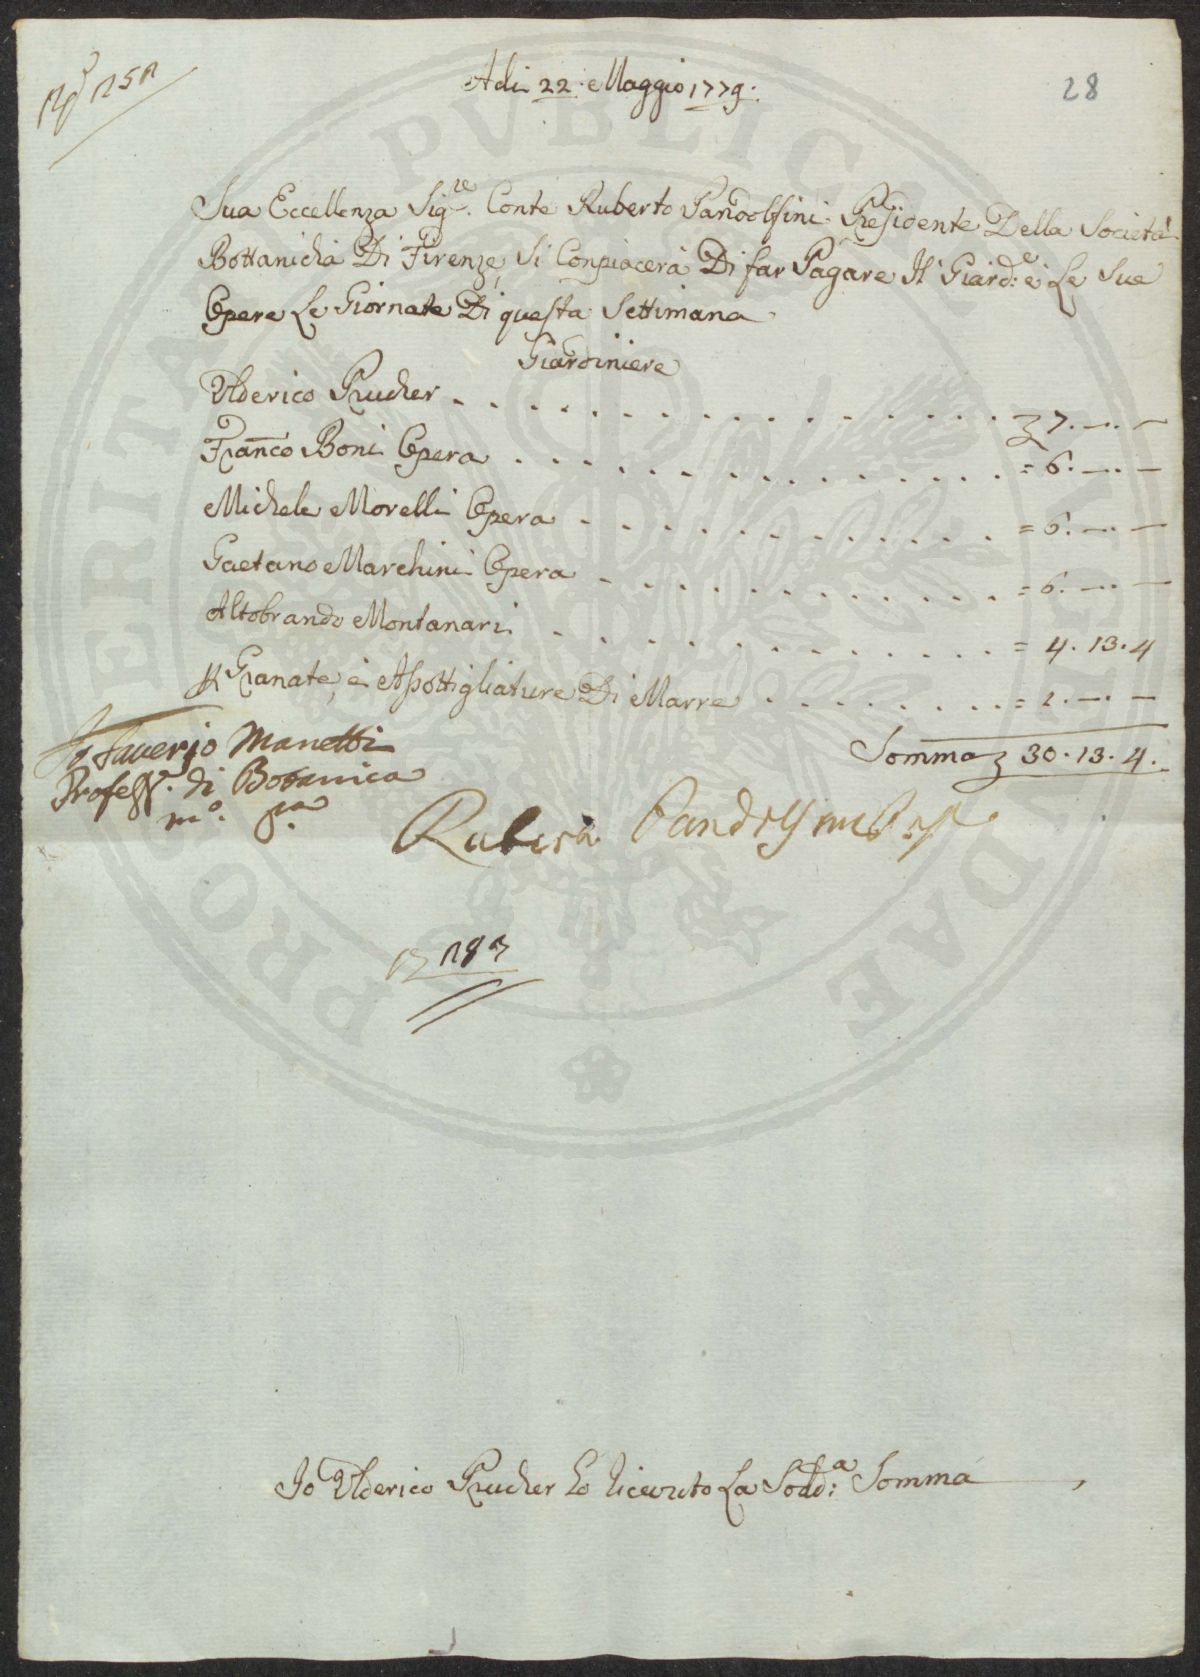 Adi 22. Maggio 1779.
28
Sua Eccellenza Sig.re Conte Ruberto Pandolfini Presidente Della Società
Bottanicha Di Firenze, Si Conpiacerà Di far Pagare Il Giard:e è Le Sue
Opere Le Giornate Di questa Settimana
Giardiniere
Ulderico Prucher
7. —. —
Franco Boni Opera
= 6. —. —
Michele Morelli Opera
= 6. —. —
Gaetano Marchini Opera
= 6. —. —
Altobrando Montanari
= 4. 13. 4
Granate, è Asottigliature Di Marre
= 1. —. —
Somma 30. 13. 4.
Saverio Manetti
Profess.r di Botanica
m.o p.a
Ruberto Pandolfini
Io Ulderico Prucher ho riceuto La Sodd:a Somma
PRO PERITATI PVBLICAE AVGENDAE